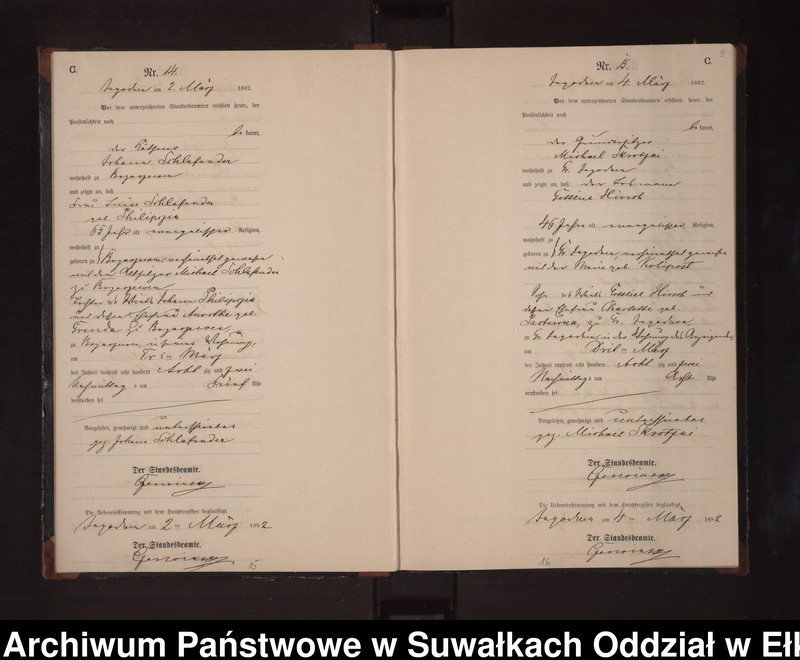 C.
Nr. 14.
Jagodnen am 2. März 1882.
Vor dem unterzeichneten Standesbeamten erschien heute, der
Persönlichkeit nach
bekannt,
der Käthner
Johann Schlafender
wohnhaft zu
und zeigte an, daß
Frau Luise Schlafender
geb. Philippzig
65 Jahr alt, evangelischer Religion,
wohnhaft zu
geboren zu verheirathet gewesen
mit dem Altsitzer Michael Schlafender
zu
Tochter des Wirths Johann Philippzig
und dessen Ehefrau geb.
zu
zu in seiner Wohnung,
am März
des Jahres tausend acht hundert Acht zig und zwei
Nachmittag s um Fünf Uhr
verstorben sei
Vorgelesen, genehmigt und unterschrieben
gez. Johann Schlafender
Der Standesbeamte.
Die Uebereinstimmung mit dem Hauptregister beglaubigt.
Jagodnen am 2 ten März 1882
Der Standesbeamte.
15
9
C.
Nr. 15.
Jagodnen am 4. März 1882.
Vor dem unterzeichneten Standesbeamten erschien heute, der
Persönlichkeit nach
bekannt,
der Grundbesitzer
Michael
wohnhaft zu Gr. Jagodnen
und zeigte an, daß der Losmann
Gottlieb Hirsch
46 Jahre alt, evangelischer Religion,
wohnhaft zu
geboren zu Gr. Jagodnen, verheirathet gewesen
mit der Marie geb.
Sohn des Wirths Gottlieb Hirsch und
dessen Ehefrau Charlotte geb.
zu Gr. Jagodnen,
zu Gr. Jagodnen, in der Wohnung des Anzeigenden,
am März
des Jahres tausend acht hundert Acht zig und zwei
Nachmittag s um Acht Uhr
verstorben sei
Vorgelesen, genehmigt und unterschrieben
gez. Michael
Der Standesbeamte.
Die Uebereinstimmung mit dem Hauptregister beglaubigt.
Jagodnen am 4 ten März 1882
Der Standesbeamte.
16
Archiwum Państwowe w Suwałkach Oddział w Ełk